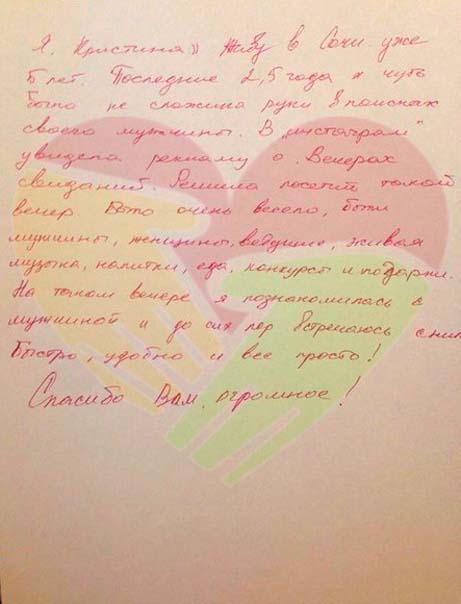 Я, Кристина)) Живу в Сочи уже
6 лет. Последние 2,5 года я чуть
было не сложила руки в поисках
своего мужчины. В "инстаграм"
увидела рекламу о Вечерах
свиданий. Решила посетить такой
вечер. Было очень весело, были
мужчины, женщины, ведущие, живая
музыка, напитки, еда, конкурсы и подарки.
На таком вечере я познакомилась с
мужчиной и до сих пор встречаюсь с ним
Быстро, удобно и все просто!
Спасибо Вам огромное!